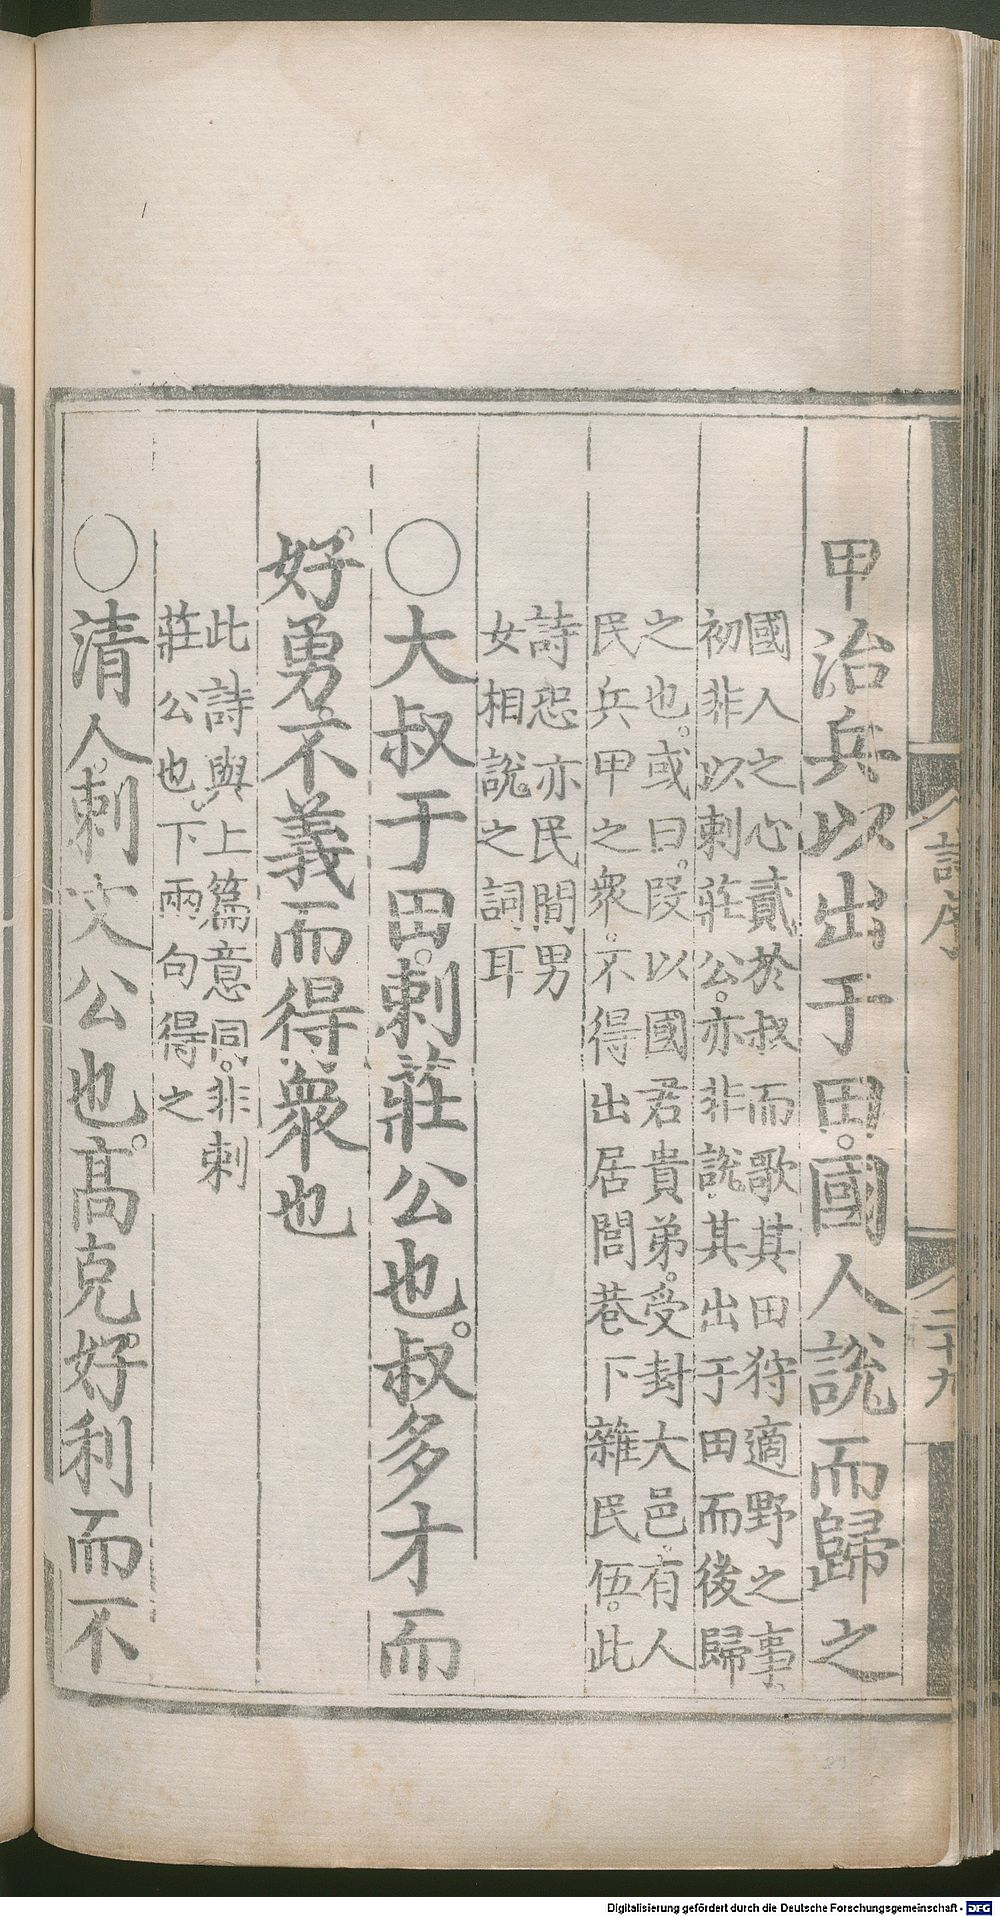 甲治兵以出于田。國人說而歸之
國人之心貳於叔而歌其田狩適野之事
初非以刺莊公。亦非說其出于田而後歸
之也。或曰。段以國君貴弟。受封大邑。有人
民兵甲之衆。不得出居閭巷下雜民伍。此
詩恐亦民間男
女相說之詞耳
○大叔于田。刺莊公也。叔多才而
好勇。不義而得衆也
此詩與上篇意同。非刺
莊公也。下兩句得之
○清人。刺文公也。高克好利而不
詩序
二十九
Digitalisierung gefördert durch die Deutsche Forschungsgemeinschaft - DFG